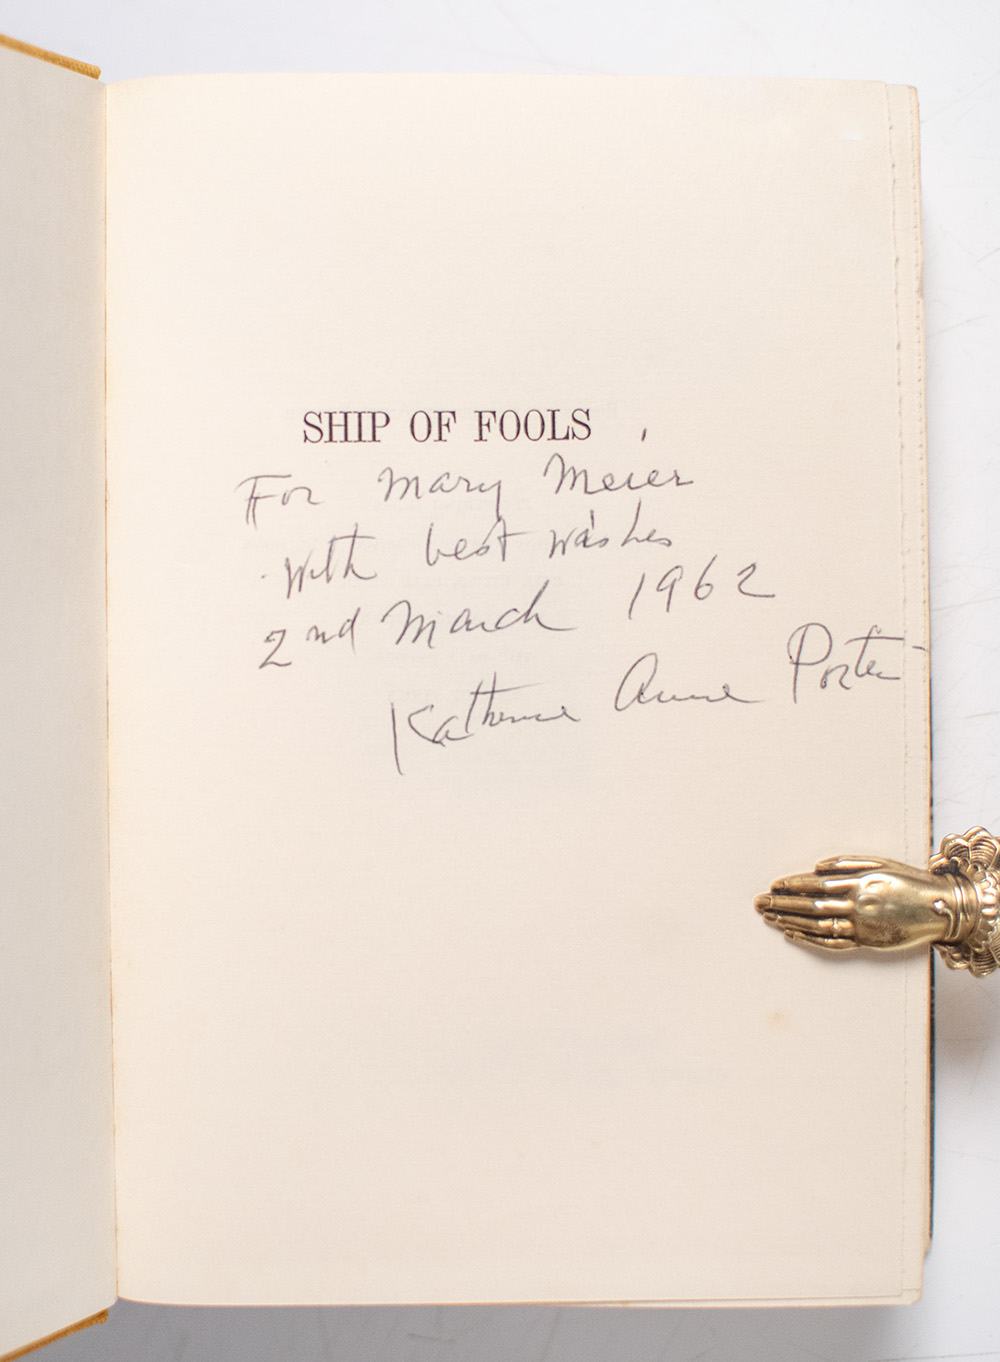 SHIP OF FOOLS
For Mary Meier
With best wishes
2nd March 1962
Katherine Anne Porter